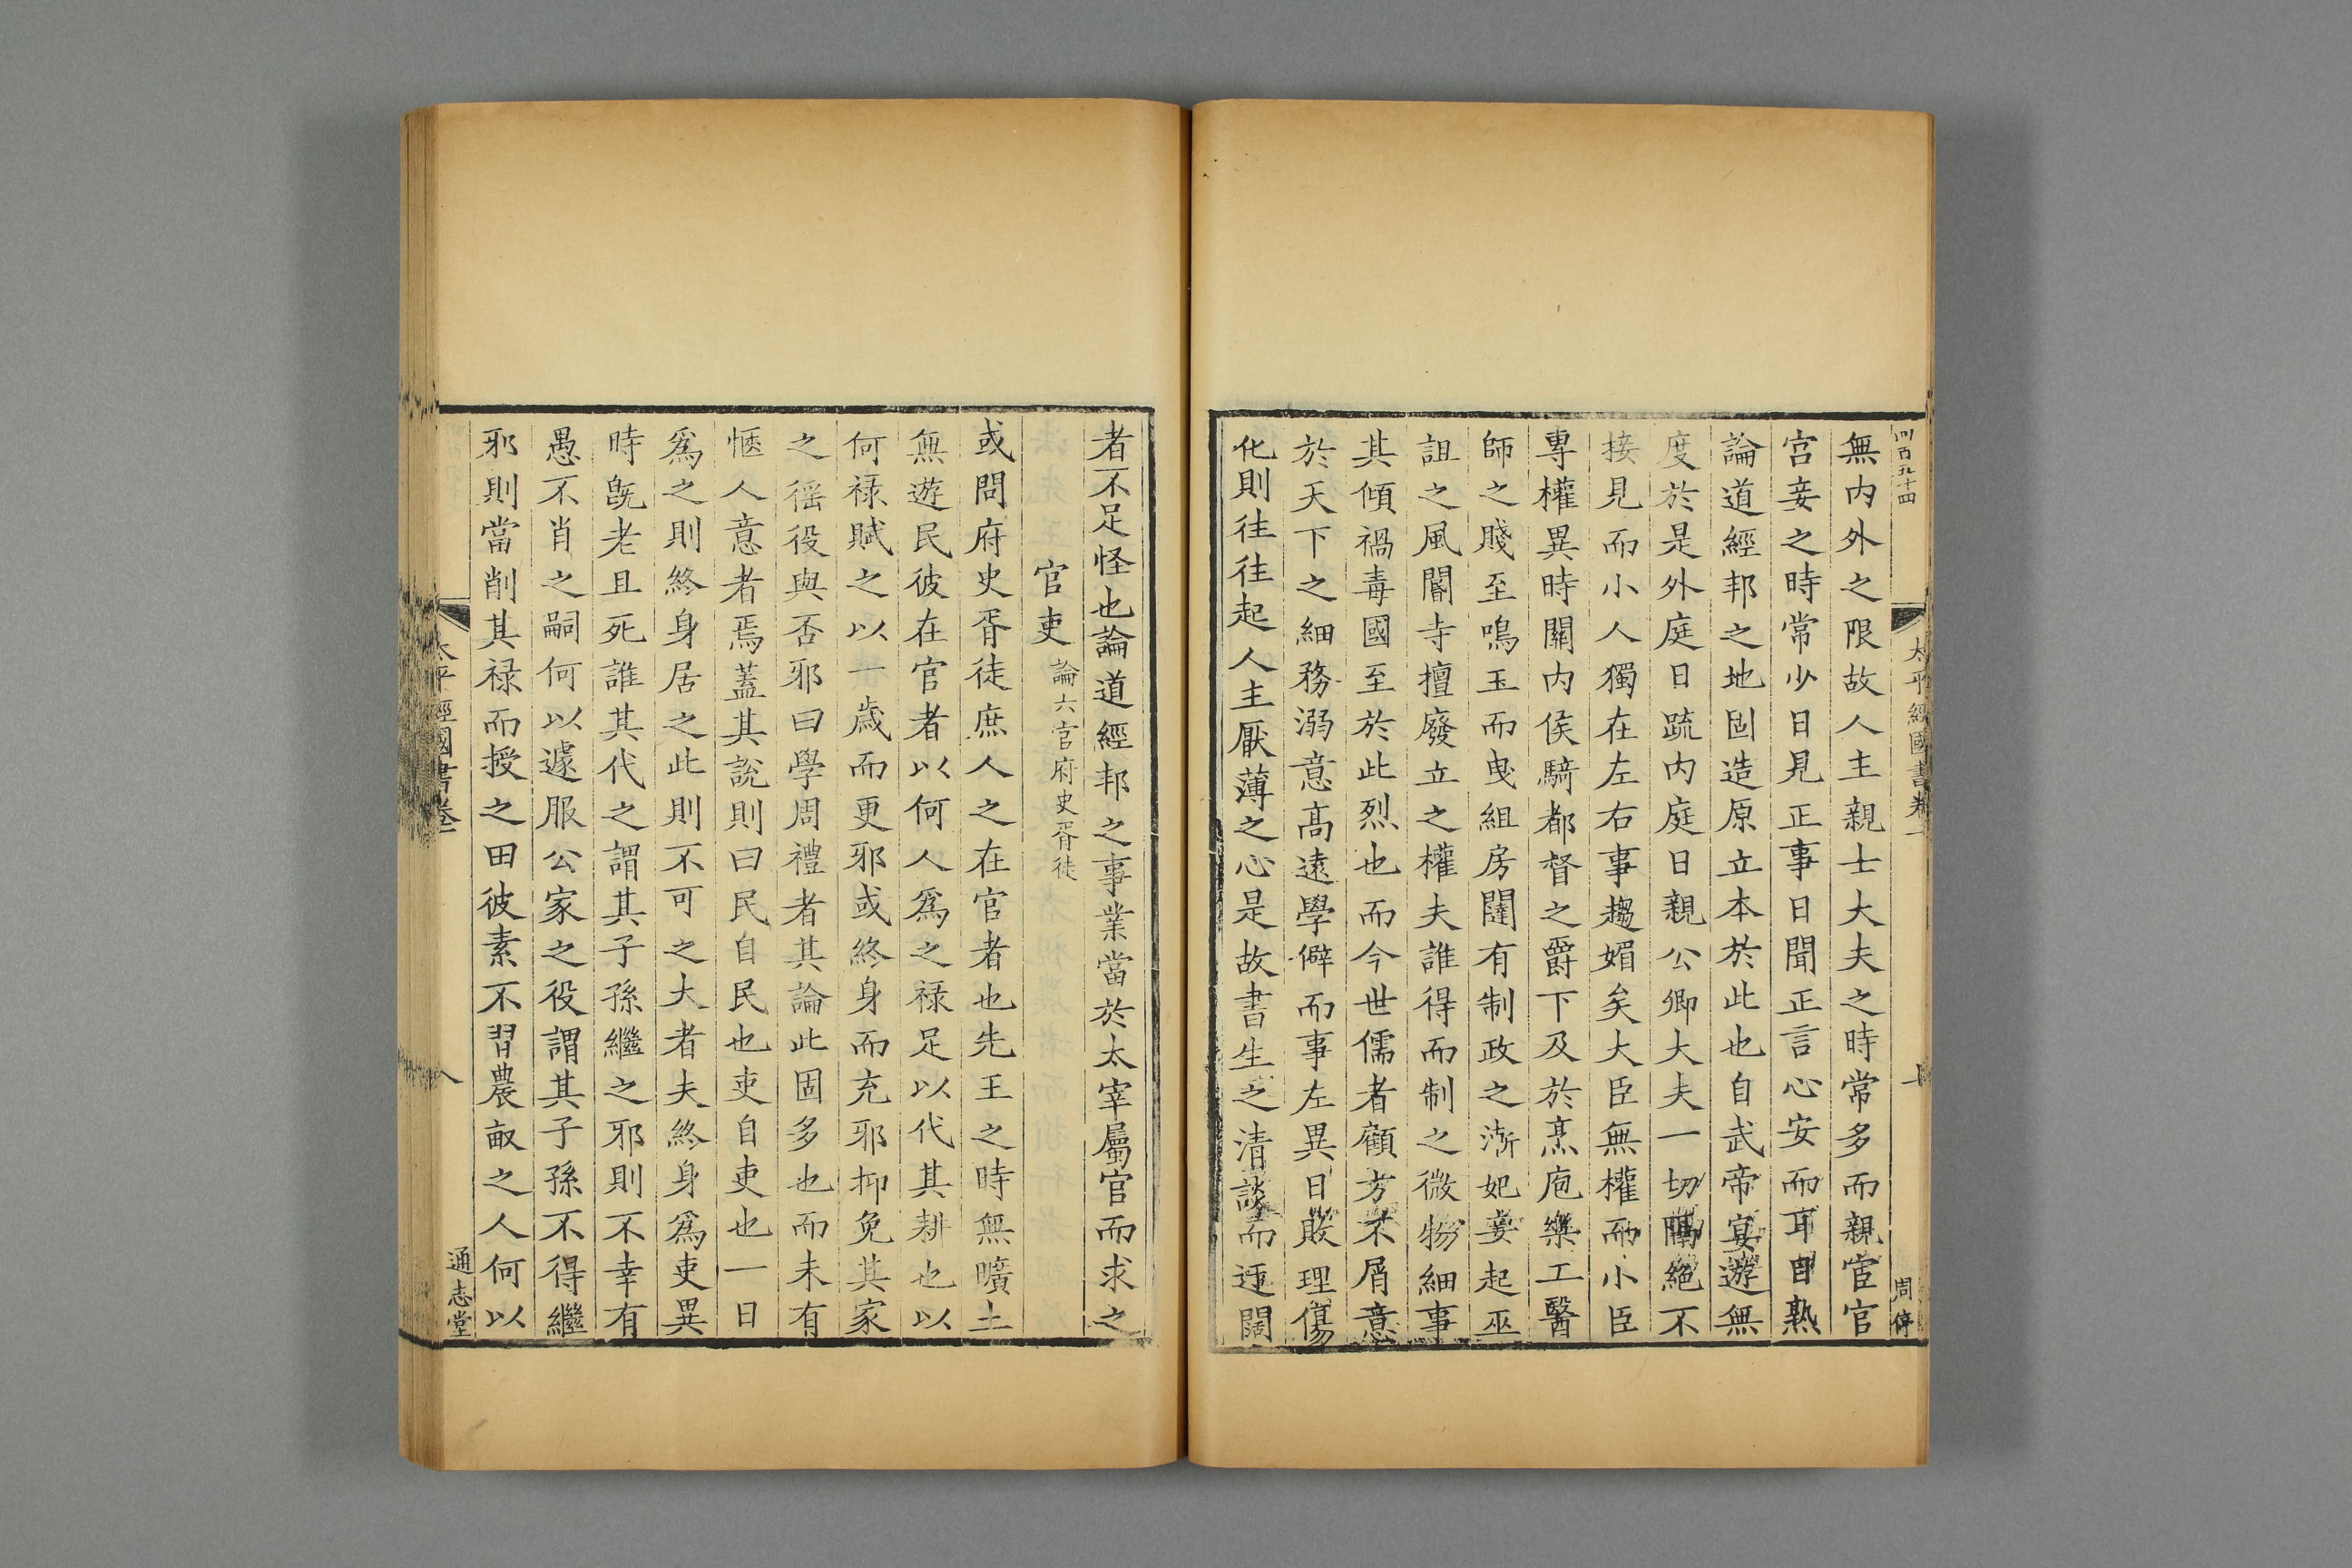 四百五十四
太平經國書卷
周
無内外之限故人主親士大夫之時常多而親宦官
宫妾之時常少日見正事日聞正言心安而耳目熟
論道經邦之地固造原立本於此也自武帝宴遊無
度於是外庭日疏内庭日親公卿大夫一切隔絕不
接見而小人獨在左右事趨媚矣大臣無權而小臣
專權異時關内侯騎都督之爵下及於烹庖樂工醫
師之賤至鳴玉而曳組房闥有制政之漸妃妾起巫
詛之風閽寺擅廢立之權夫誰得而制之微物細事
其傾禍毒國至於此烈也而今世儒者顧方不屑意
於天下之細務溺意高遠學僻而事左異日敗理傷
化則往往起人主厭薄之心是故書生之清談而迂闊
者不足怪也論道經邦之事業當於太宰屬官而求之
官吏 論六官府史胥徒
或問府史胥徒庶人之在官者也先王之時無曠土
無遊民彼在官者以何人爲之禄足以代其耕也以
何禄賦之以一歲而更邪或終身而充邪抑免其家
之徭役與否邪曰學周禮者其論此固多也而未有
愜人意者焉蓋其說則曰民自民也吏自吏也一日
爲之則終身居之此則不可之大者夫終身爲吏異
時旣老且死誰其代之謂其子孫繼之邪則不幸有
愚不肖之嗣何以遽服公家之役謂其子孫不得繼
邪則當削其禄而授之田彼素不習農畝之人何以
太平經國書卷一
八
通志堂